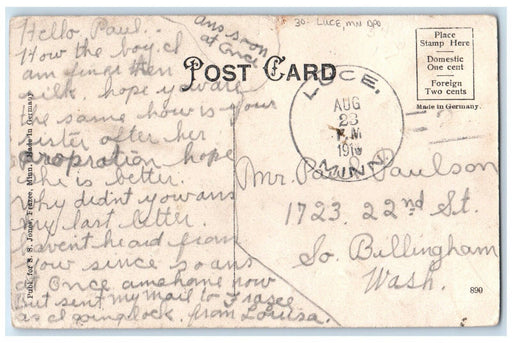 ans soon
at Once
30- LUCE, MN DPO
Hello Paul..
How the boy. I
am fine then
silk hope you are
the same how is your
sister after her
opropration hope
she is better.
Why didnt you ans
my last letter.
havent heard from
you since so ans
at Once am home now
but sent my mail to Frazee
as closing lock. from Louisa.
POST CARD
LUCE,
AUG
23
P M
1910
MINN.
Place
Stamp Here
Domestic
One cent
Foreign
Two cents
Made in Germany.
Mr. Paul Paulson
1723. 22nd St.
So. Billingham
Wash.
890
Publ. for S. S. Jones, Frazee, Minn. Made in Germany